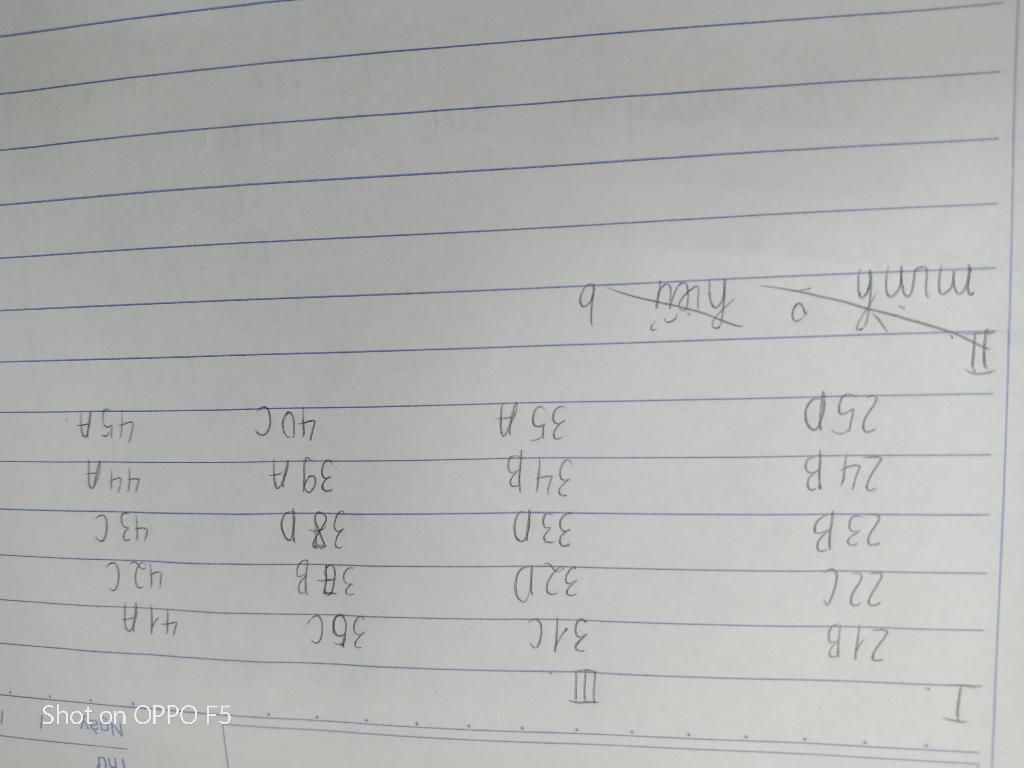 Thứ
Ngày
I III
21B 31C 36C 41A
22C 32D 37B 42C
23B 33D 38D 43C
24B 34B 39A 44A
25D 35A 40C 45A
II
minh o hiếu b
Shot on OPPO F5